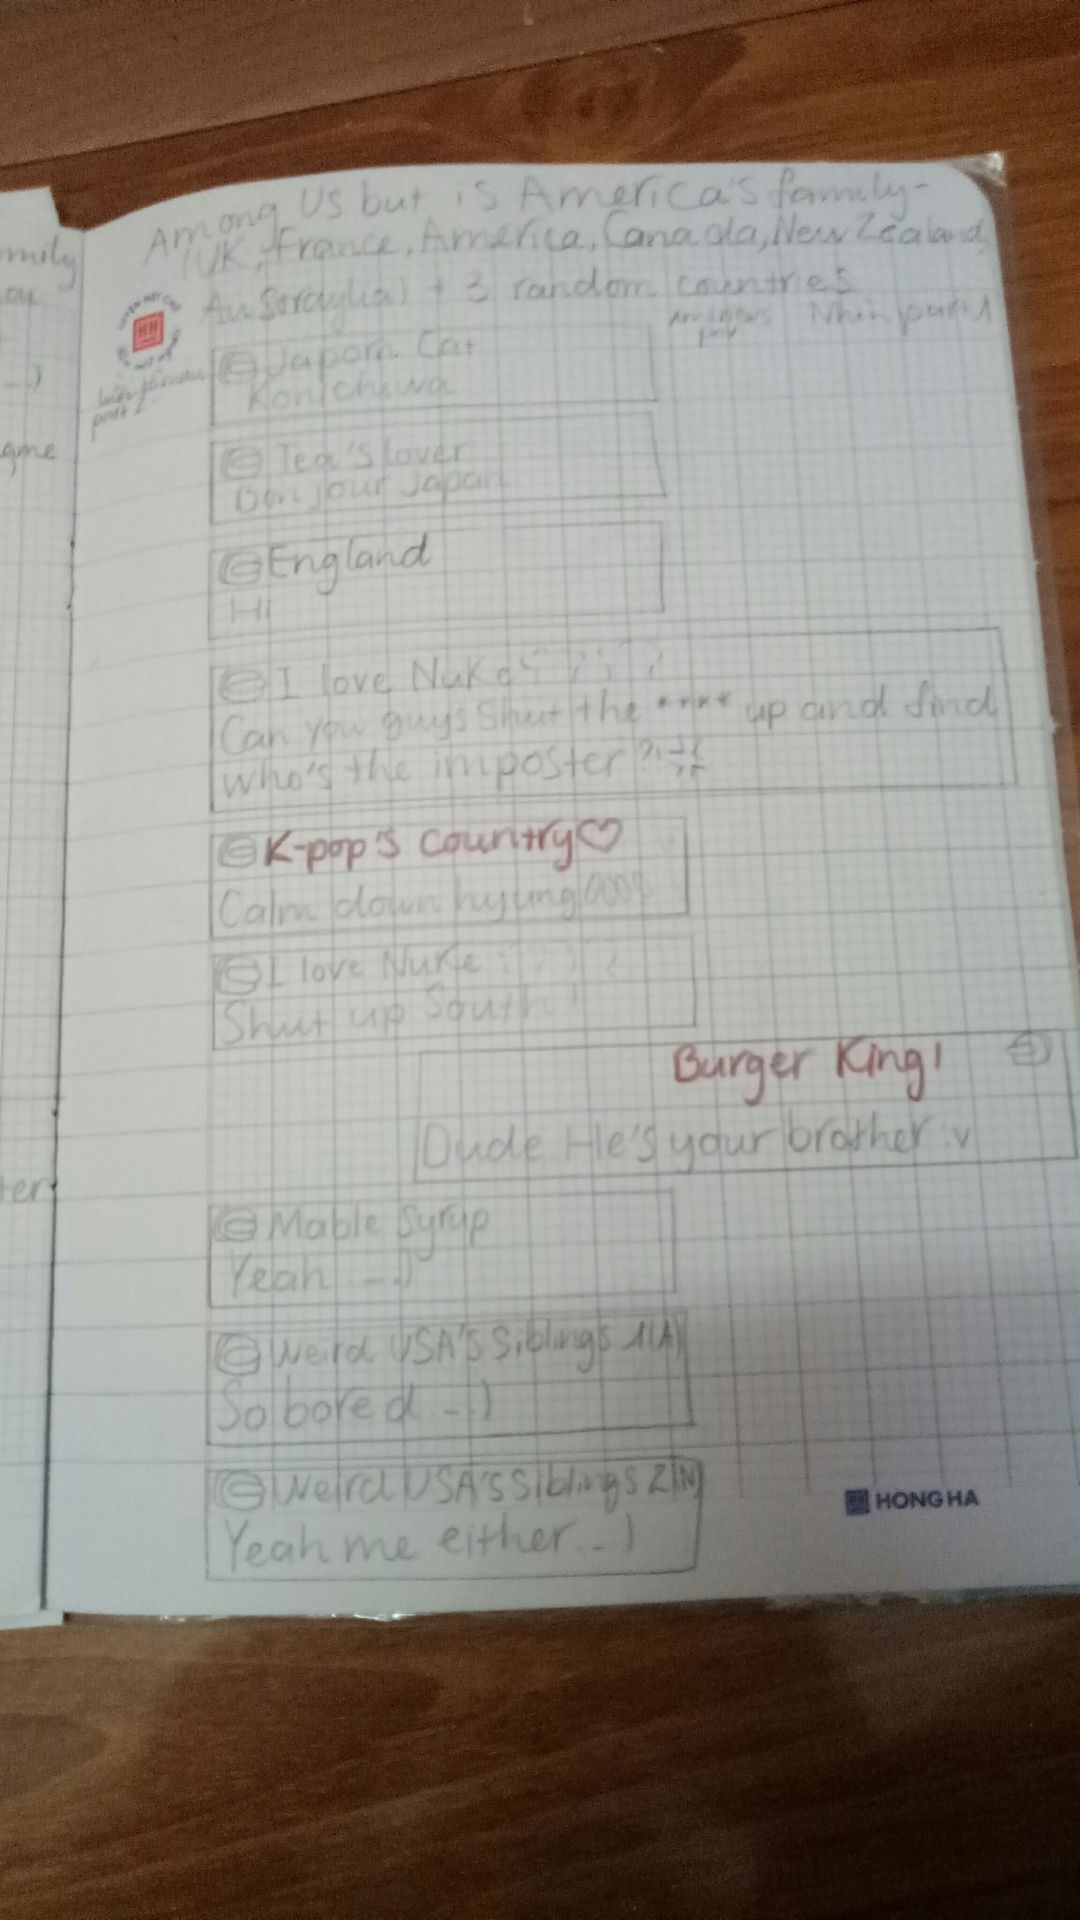 Among Us but is America's family-
(UK, France, America, Canada, New Zealand,
Austraylia) + 3 random countries
part 1
part 1
Japan Cat
Konichiwa
Tea's lover
Bonjour Japan
England
Hi
I love Nuke
Can you guys shut the **** up and find
who's the imposter
K-pop's country♡
Calm down hyung
I love Nuke
Shut up South!
Burger King!
Dude He's your brother :v
Mable Syrup
Yeah -.-)
Weird USA's Siblings 1(A)
So bored -.)
Weird USA's Siblings 2(N)
Yeah me either -.)
HONG HA
mily
gme
ter